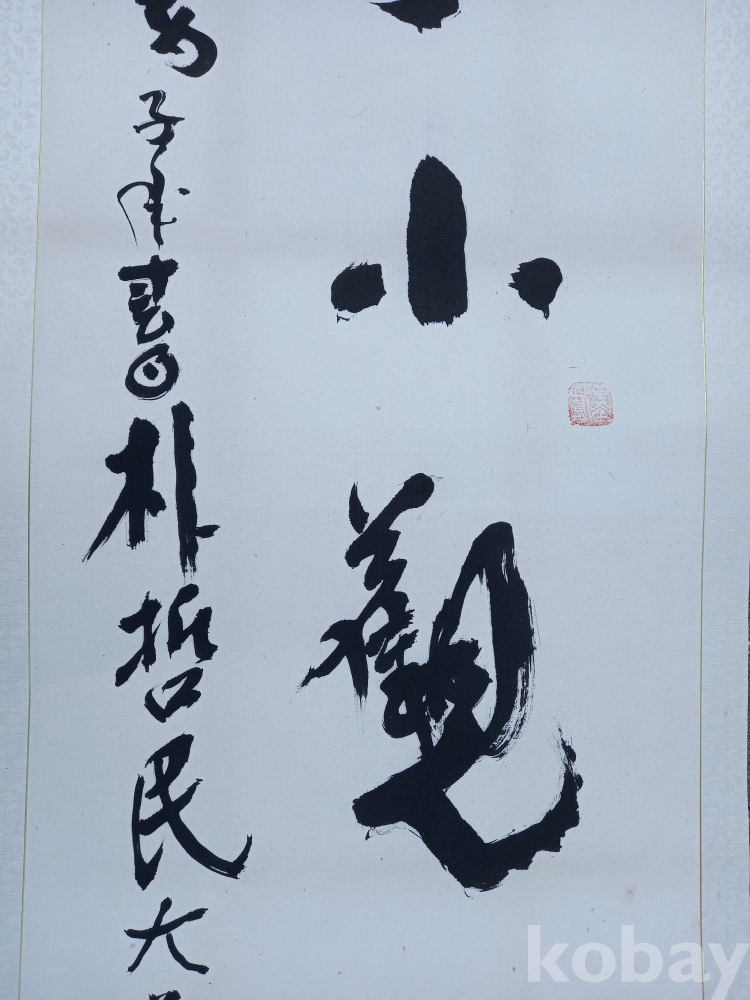 小觀
子年書朴哲民大
kobay